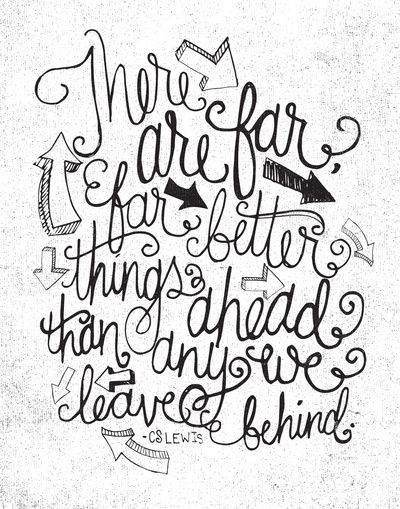 There
are far,
far better
things
ahead
than any we
leave behind.
-CS LEWIS